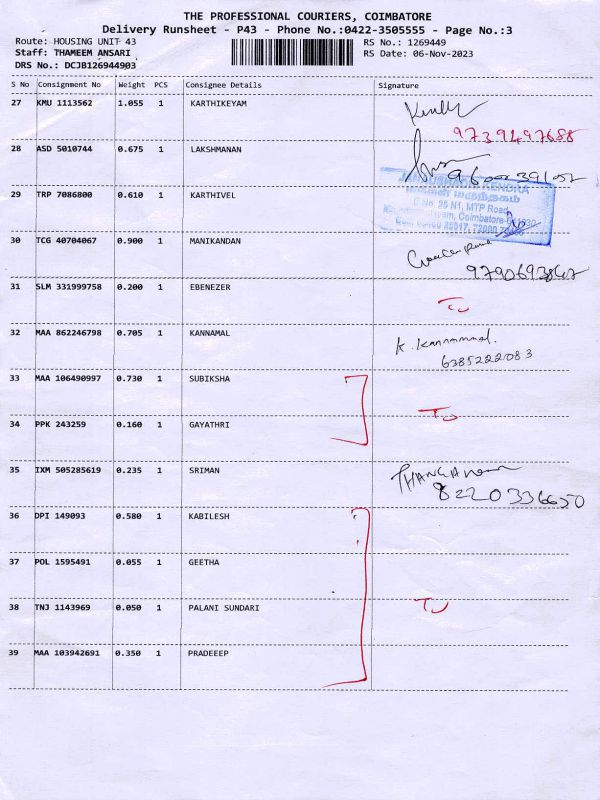 THE PROFESSIONAL COURIERS, COIMBATORE
Delivery Runsheet - P43 - Phone No.:0422-3505555 - Page No.:3
Route: HOUSING UNIT 43 RS No.: 1269449
Staff: THAMEEM ANSARI RS Date: 06-Nov-2023
DRS No.: DCJB126944903
S No Consignment No Weight PCS Consignee Details Signature
27 KMU 1113562 1.055 1 KARTHIKEYAM
9739497688
28 ASD 5010744 0.675 1 LAKSHMANAN
KENDRA
29 TRP 7086800 0.610 1 KARTHIVEL
No. 25 N1, MTP Road,
Coimbatore
30 TCG 40704067 0.900 1 MANIKANDAN
31 SLM 331999758 0.200 1 EBENEZER
32 MAA 862246798 0.705 1 KANNAMAL K. Kannammal.
6385222083
33 MAA 106490997 0.730 1 SUBIKSHA
34 PPK 243259 0.160 1 GAYATHRI
35 IXM 505285619 0.235 1 SRIMAN
8220336650
36 DPI 149093 0.580 1 KABILESH
37 POL 1595491 0.055 1 GEETHA
38 TNJ 1143969 0.050 1 PALANI SUNDARI
39 MAA 103942691 0.350 1 PRADEEEP